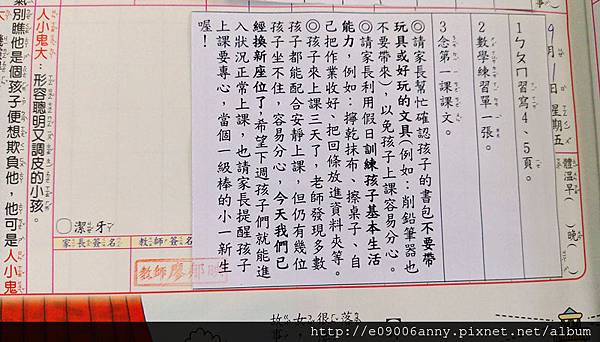 9月1日星期五
體溫早( )晚( )
1ㄅㄆㄇ習寫4、5頁。
2數學練習單一張。
3念第一課課文。
◎請家長幫忙確認孩子的書包不要帶
玩具或好玩的文具(例如:削鉛筆器也
不要帶來),以免孩子上課容易分心。
◎請家長利用假日訓練孩子基本生活
能力,例如:擰乾抹布、擦桌子、自
己把作業收好、把回條放進資料夾等。
◎孩子來上課三天了,老師發現多數
孩子都能配合安靜上課,但仍有幾位
孩子坐不住,容易分心,今天我們已
經換新座位了,希望下週孩子們就能進
入狀況正常上課,也請家長提醒孩子
上課要專心,當個一級棒的小一新生
喔!
潔牙
家長簽名
教師簽名
教師廖
人小鬼大:形容聰明又調皮的小孩。
氣別瞧他是個孩子便想欺負他,他可是人小鬼
故女很落
http://e09006anny.pixnet.net/album